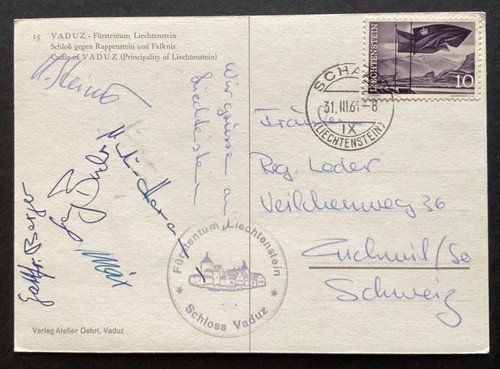 15 VADUZ - Fürstentum Liechtenstein
Schloß gegen Rappenstein und Falknis
Castle of VADUZ (Principality of Liechtenstein)
LIECHTENSTEIN
10
SCHAAN
31.III.61-8
IX
(LIECHTENSTEIN)
Wir grüssen aus
Liechtenstein
Fräulein
Reg. Leder
Veilchenweg 36
Zuchwil/So
Schweiz
Fürstentum Liechtenstein
Schloss Vaduz
Verlag Atelier Oehri, Vaduz